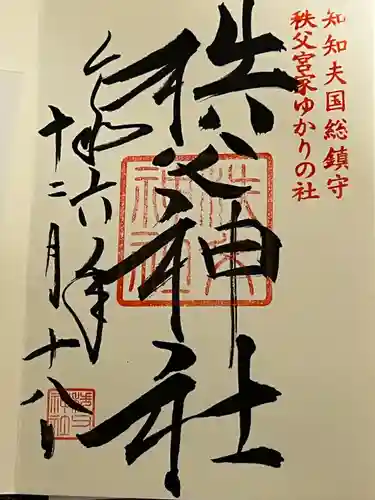 知知夫国総鎮守
秩父宮家ゆかりの社
秩父神社
令和六年
十二月十八日
秩父
神社
秩父
神社